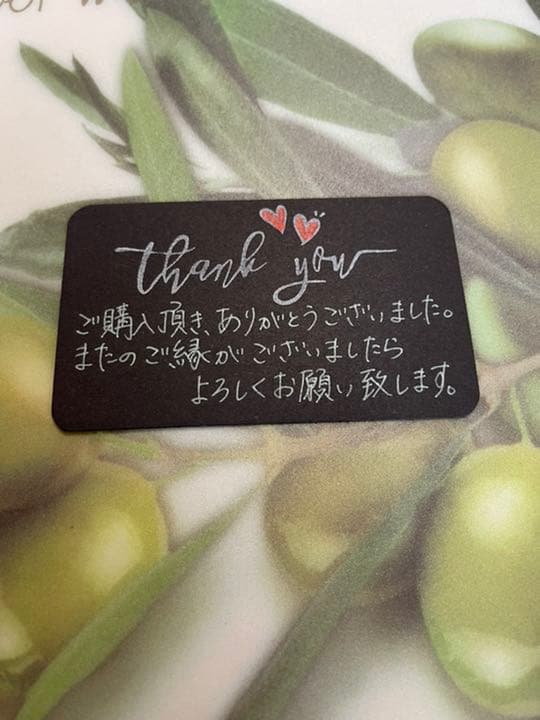 thank you
ご購入頂き、ありがとうございました。
またのご縁がございましたら
よろしくお願い致します。